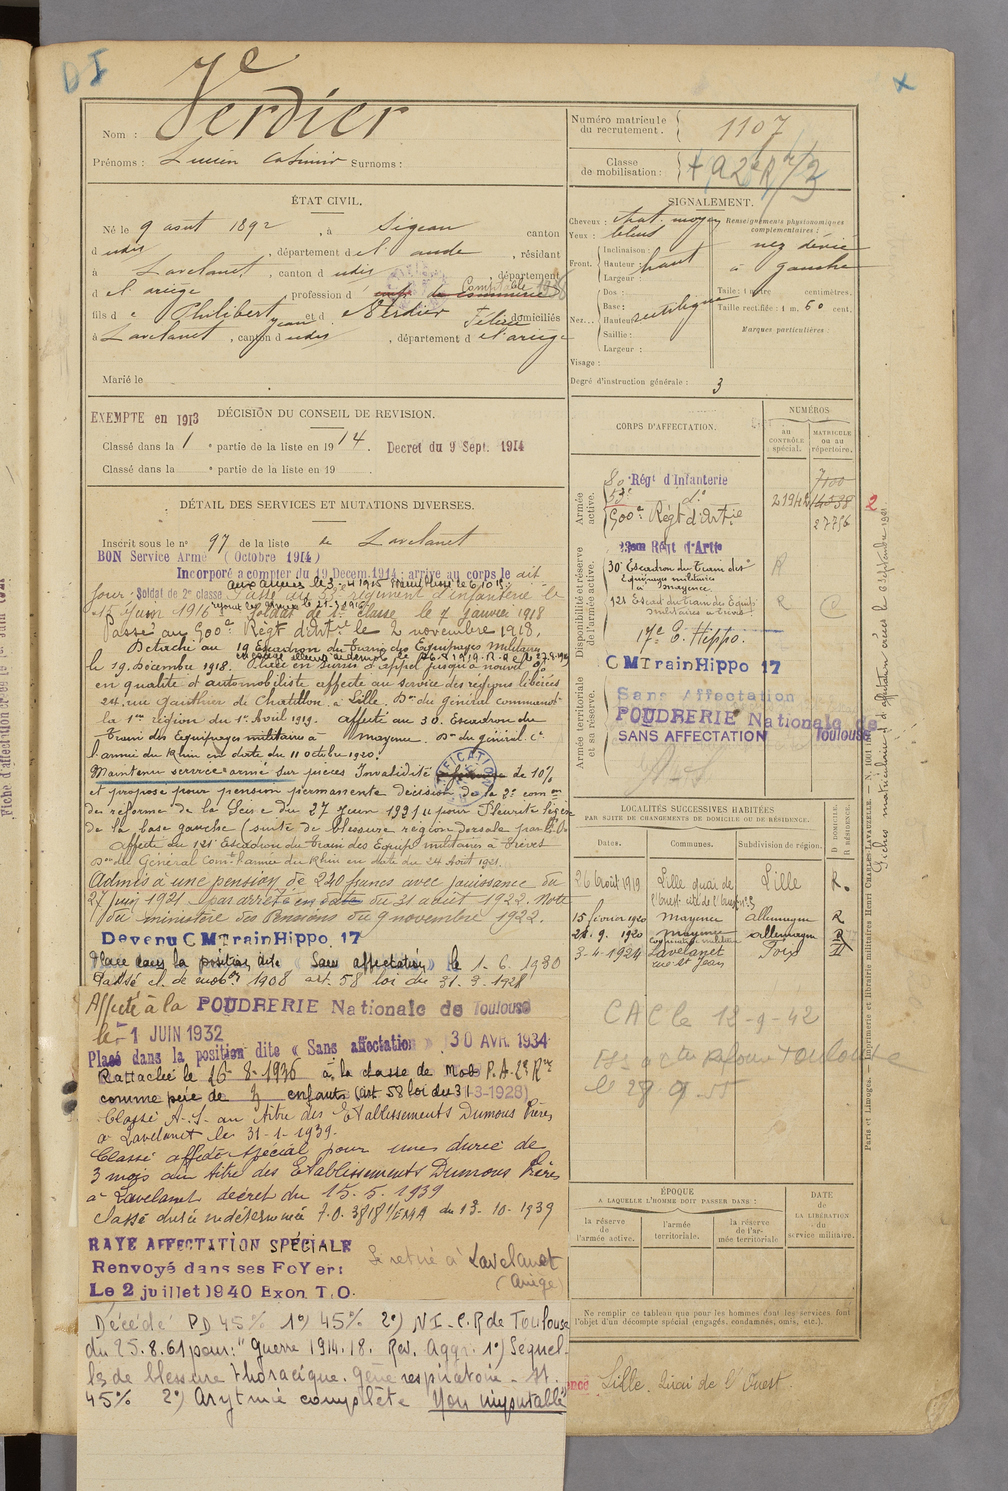 DI
7e
Nom : Verdier
Prénoms : Lucien Casimir Surnoms :
Numéro matricule du recrutement. 1107
Classe de mobilisation :
ÉTAT CIVIL.
Né le 9 août 1892, à Sigean canton
dudis, département de l'aude, résidant
à Lavelanet, canton dudis département
d el ariège profession d Comptable
fils de Philibert et d Verdier Félicie domiciliés
à Lavelanet, canton dudis, département d el'ariège
Marié le
SIGNALEMENT.
Cheveux : chat. moyen
Yeux : bleus
Renseignements physionomiques complémentaires :
nez dévié
à gauche
Front. Inclinaison :
Hauteur : haut
Largeur :
Nez... Dos :
Base :
Hauteur : rectiligne
Saillie :
Largeur :
Taille : 1 mètre centimètres.
Taille rectifiée : 1 m. 60 cent.
Marques particulières :
Visage :
Degré d'instruction générale : 3
DÉCISION DU CONSEIL DE REVISION.
EXEMPTE en 1913
Classé dans la 1e partie de la liste en 1914. Decret du 9 Sept. 1914
Classé dans la e partie de la liste en 19
DÉTAIL DES SERVICES ET MUTATIONS DIVERSES.
Inscrit sous le n° 97 de la liste de Lavelanet
BON Service Armé (Octobre 1914)
Incorporé a compter du 19 Decem. 1914 : arrive au corps le dit
jour. Soldat de 2e classe Passé au 53e régiment d'infanterie le
15 Juin 1916 Soldat de 1re classe le 7 janvier 1918
Passé au 500e Régt d'Artie le 2 novembre 1918.
Détaché au 19 Escadron du Train des Equipages Militaires
le 19 Décembre 1918.
en qualité d'automobiliste affecté au service des régions libérées
24 rue Gauthier de Chatillon à Lille. Don du général commandt
la 1re région du 1er Avril 1919. Affecté au 30. Escadron du
Train des Equipages militaires à mayence. Don du général Ct
l'armée du Rhin en date du 11 octobre 1920.
Maintenu service armé sur pièces Invalidité de 10%
et proposé pour pension permanente décision de la 3e com on
de réforme de la Seine du 27 Juin 1921 pour Pleurite légère
de la base gauche (suite de blessure région dorsale par B.O
Affecté au 121 Escadron du Train des Equip militaires à Trèves
Don du Général Comt l'armée du Rhin en date du 24 Août 1921.
Admis à une pension de 240 francs avec jouissance du
27 juin 1921 par arrêté en date du 31 août 1922. Note
du ministère des Pensions du 9 novembre 1922.
Devenu CMTrainHippo. 17
Placé dans la position dite « Sans affectation » le 1.6.1930
Passé cl. de mobon 1908 art. 58 loi du 31.3.1928
Affecté à la POUDRERIE Nationale de Toulouse
le 1 JUIN 1932
Placé dans la position dite « Sans affectation » 30 AVR. 1934
Rattaché le 16-8-1936 à la classe de Mob
comme père de 2 enfants (art. 58 loi du 31-3-1928)
Classé A.S. au titre des Etablissements Dumons Frères
à Lavelanet le 31-1-1939.
Classé affecté spécial pour une durée de
3 mois au titre des Etablissements Dumons Frères
à Lavelanet décret du 15.5.1939
classé durée indéterminée F.O. 3818 1/EMA du 13-10-1939
RAYE AFFECTATION SPÉCIALE
Renvoyé dans ses FoYers
Le 2 juillet 1940 Exon T.O.
Se retire à Lavelanet
(Ariège)
Décédé PD 45% 1°) 45% 2°) NI - C.R de Toulouse
du 25.8.61 pour : "Guerre 1914.18. Rev. Aggr. 1°) Sequel-
les de blessure thoracique. gêne respiratoire.
45% 2°) Arytmie complète Non imputable
CORPS D'AFFECTATION.
NUMÉROS
au CONTRÔLE spécial.
MATRICULE ou au répertoire.
Armée active.
80 Régt d'Infanterie 7100
53e do 21942 14538
500e Régt d'Artie 27756
2
Disponibilité et réserve de l'armée active.
19em Régt d'Artie
30 Escadron du Train des Equipages militaires à mayence. R
121 Escad du Train des Equip militaires à Trèves R C
17e E. Hippo.
CMTrainHippo 17
Armée territoriale et sa réserve.
Sans Affectation
POUDRERIE Nationale de Toulouse
SANS AFFECTATION
LOCALITÉS SUCCESSIVES HABITÉES
PAR SUITE DE CHANGEMENTS DE DOMICILE OU DE RÉSIDENCE.
Dates. Communes. Subdivision de région. D DOMICILE. R RÉSIDENCE.
26 Août 1919 Lille quai de l'Ouest Lille R.
15 février 1920 mayence allemagne R
21.9.1920 mayence allemagne R
3-4-1924 Lavelanet rue St Jean Foix D
CAC le 12-9-42
Toulouse
le 28.9.55
ÉPOQUE
A LAQUELLE L'HOMME DOIT PASSER DANS :
la réserve de l'armée active.
l'armée territoriale.
la réserve de l'armée territoriale
DATE de LA LIBÉRATION du service militaire.
Ne remplir ce tableau que pour les hommes dont les services font
l'objet d'un décompte spécial (engagés, condamnés, omis, etc.).
Lille. Quai de l'Ouest.
Paris et Limoges. — Imprimerie et librairie militaires Henri CHARLES-LAVAUZELLE.